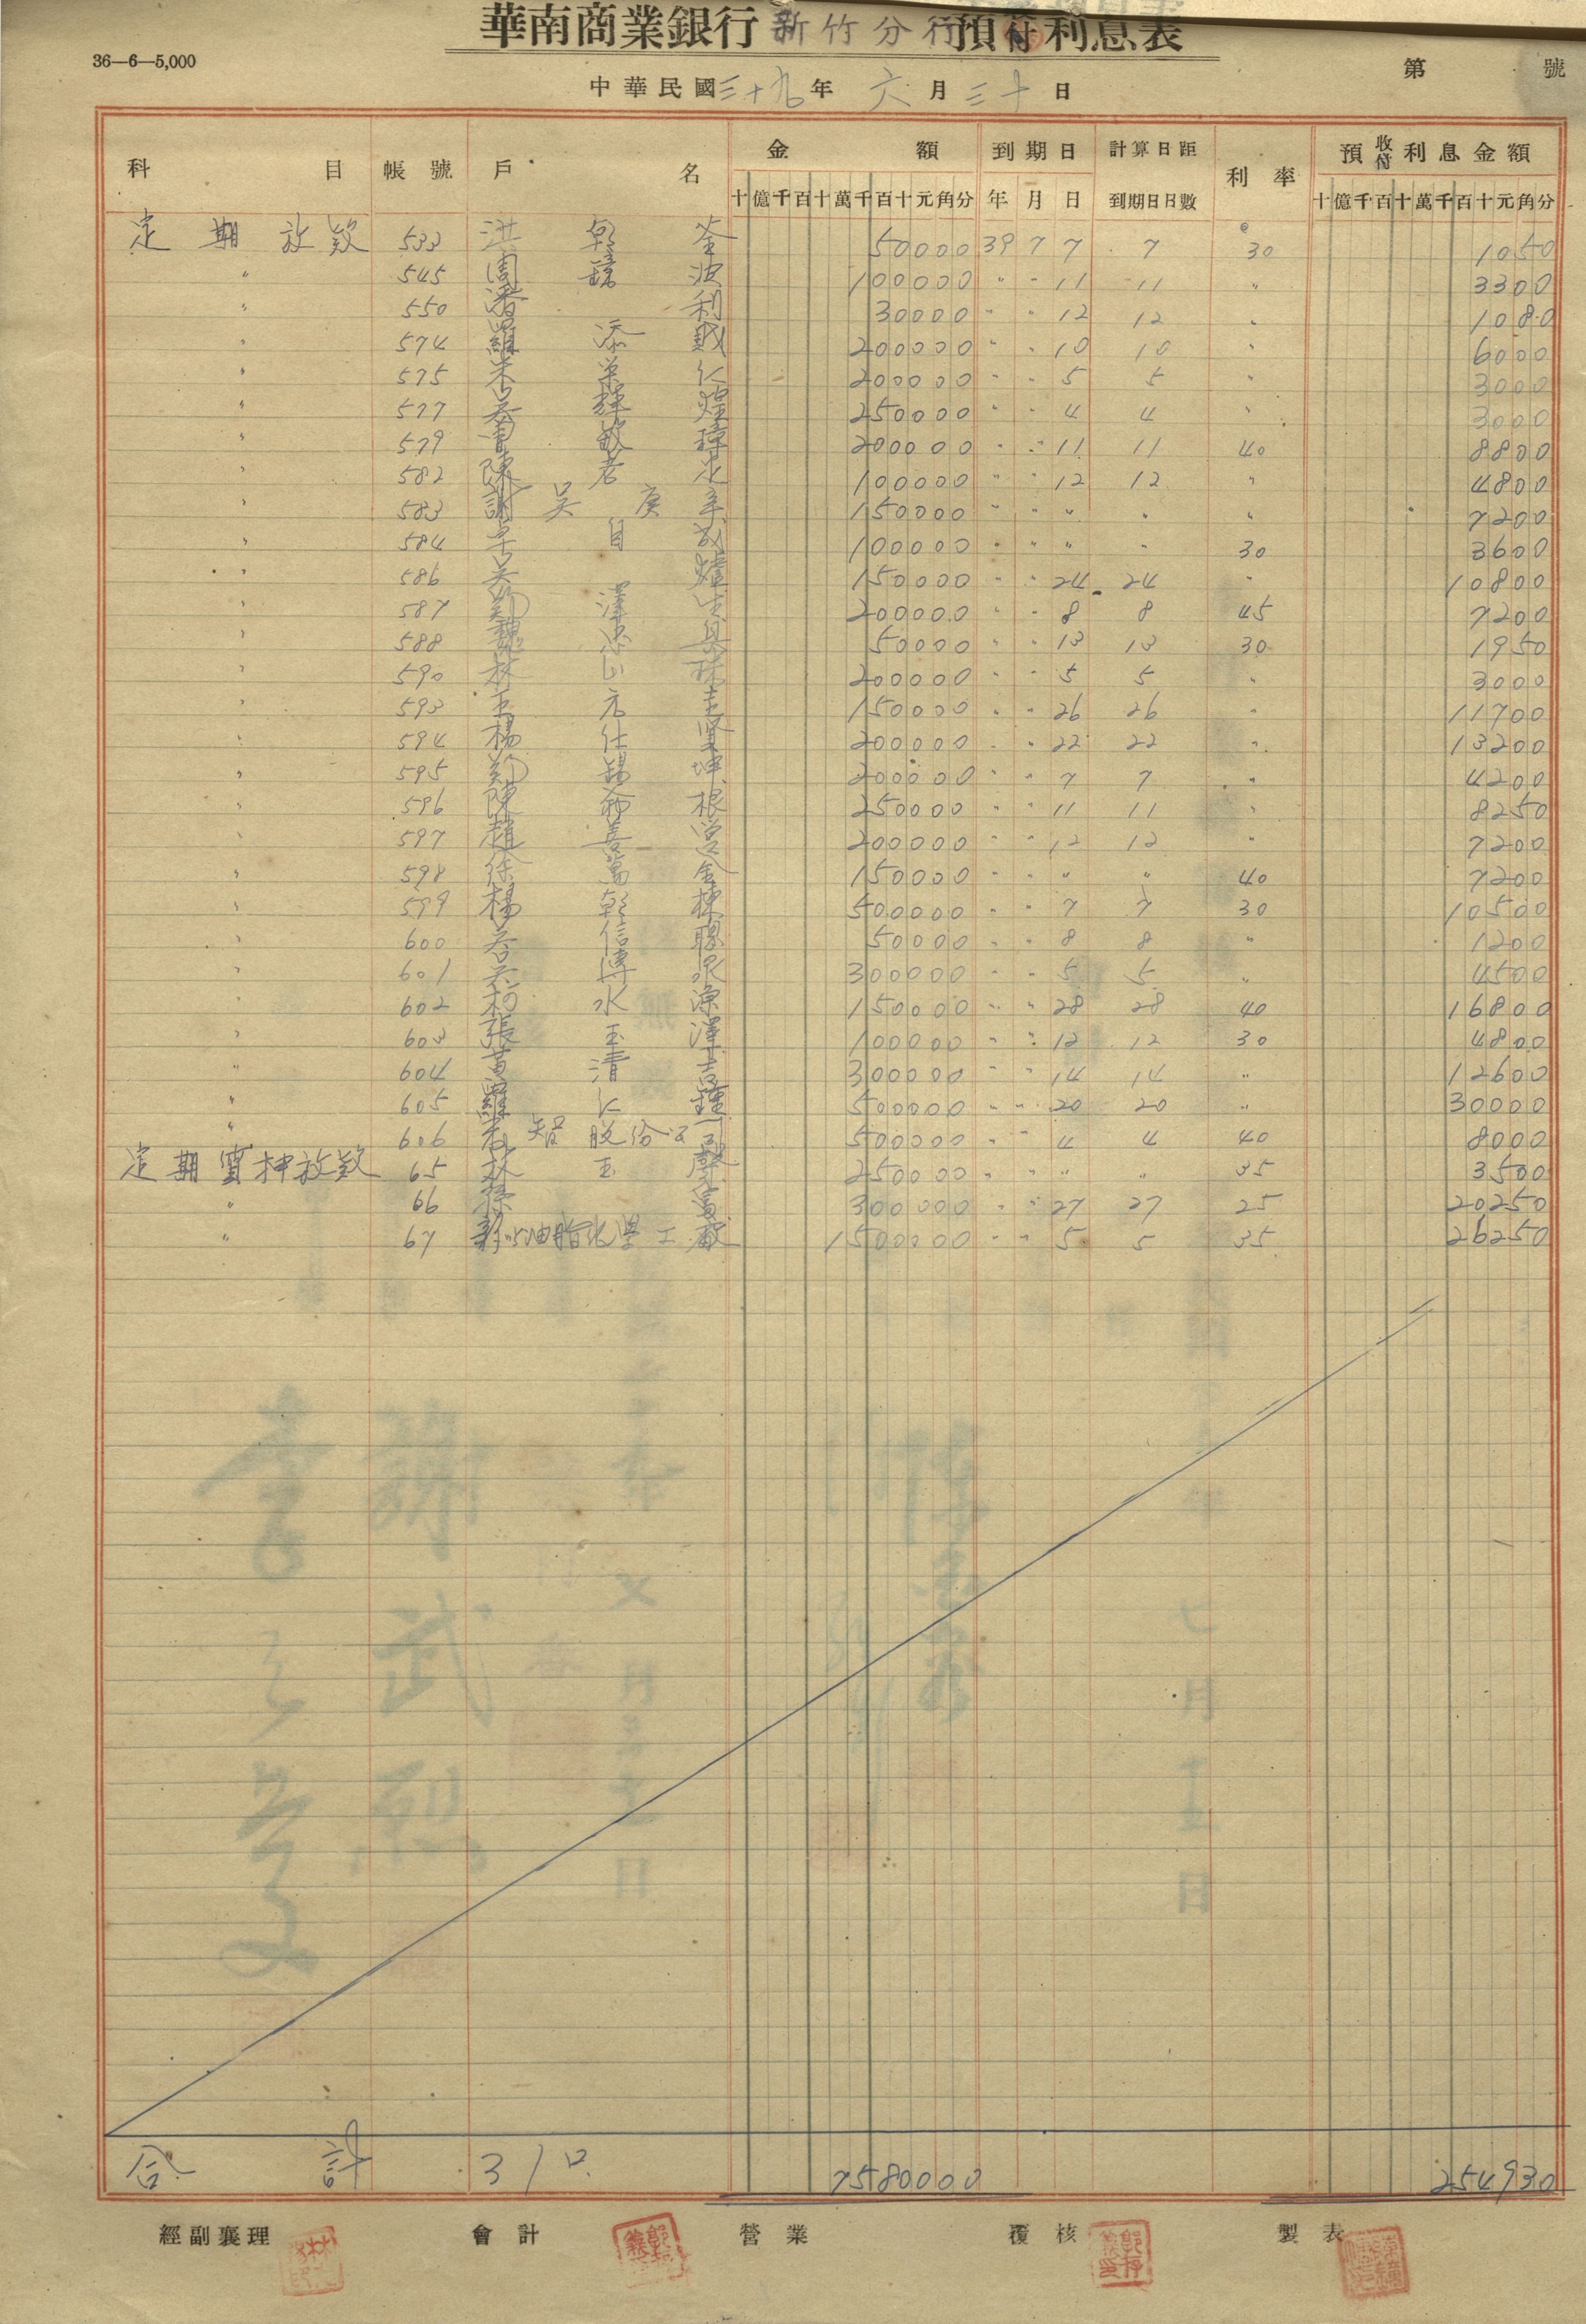 華南商業銀行 新竹分行 預付利息表
36—6—5,000
第 號
中華民國三十九年 六月三十日
科目 帳號 戶名 金額 到期日 計算日距到期日日數 利率 預收付利息金額
十億千百十萬千百十元角分 年 月 日 十億千百十萬千百十元角分
定期放款 533 洪 50000 39 7 7 7 30 1050
〃 545 周 波 100000 〃 〃 11 11 〃 3300
〃 550 潘 利 30000 〃 〃 12 12 〃 1080
〃 574 羅添 200000 〃 〃 10 10 〃 6000
〃 575 朱 仁 200000 〃 〃 5 5 〃 3000
〃 577 吳輝煌 250000 〃 〃 4 4 〃 3000
〃 579 敏 200000 〃 〃 11 11 40 8800
〃 582 陳 100000 〃 〃 12 12 〃 4800
〃 583 謝吳庚辛 150000 〃 〃 〃 〃 〃 7200
〃 584 100000 〃 〃 〃 〃 30 3600
〃 586 吳 150000 〃 〃 24 24 〃 10800
〃 587 鄭 200000 〃 〃 8 8 45 7200
〃 588 魏 50000 〃 〃 13 13 30 1950
〃 590 林山 200000 〃 〃 5 5 〃 3000
〃 593 王元 150000 〃 〃 26 26 〃 11700
〃 594 楊仕賢 200000 〃 〃 22 22 〃 13200
〃 595 鄭錫坤 200000 〃 〃 7 7 〃 4200
〃 596 陳 根 250000 〃 〃 11 11 〃 8250
〃 597 趙善 200000 〃 〃 12 12 〃 7200
〃 598 徐萬金 150000 〃 〃 〃 〃 40 7200
〃 599 楊乾 500000 〃 〃 7 7 30 10500
〃 600 信 50000 〃 〃 8 8 〃 1200
〃 601 博泉 300000 〃 〃 5 5 〃 4500
〃 602 柯水源 150000 〃 〃 28 28 40 16800
〃 603 張玉澤 100000 〃 〃 12 12 30 4800
〃 604 黃清吉 300000 〃 〃 14 14 〃 12600
〃 605 羅仁 500000 〃 〃 20 20 〃 30000
〃 606 智股份公司 500000 〃 〃 4 4 40 8000
定期質押放款 65 林玉聲 250000 〃 〃 〃 〃 35 3500
〃 66 蘇富 300000 〃 〃 27 27 25 20250
〃 67 新竹油脂化學工廠 1500000 〃 〃 5 5 35 26250
合計 31口 7580000 254930
經副襄理 會計 營業 覆核 製表